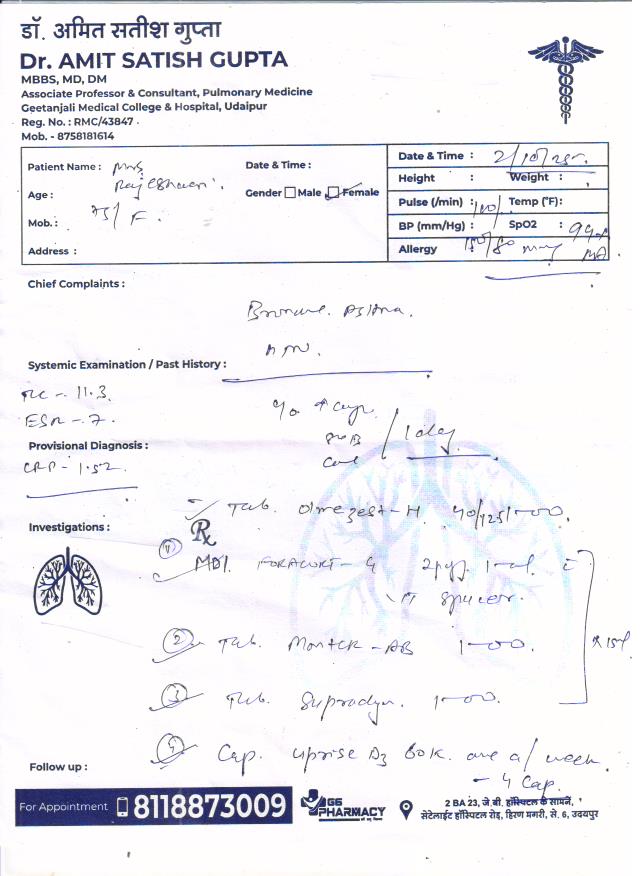 डॉ. अमित सतीश गुप्ता
Dr. AMIT SATISH GUPTA
MBBS, MD, DM
Associate Professor & Consultant, Pulmonary Medicine
Geetanjali Medical College & Hospital, Udaipur
Reg. No. : RMC/43847
Mob. - 8758181614
Patient Name : Mrs
Age : 75/F.
Mob. :
Address :
Date & Time :
Gender Male Female
Date & Time :
Height : Weight :
Pulse (/min) : Temp (°F):
BP (mm/Hg) : SpO2 :
Allergy
Chief Complaints :
Systemic Examination / Past History :
TLC - 11.3
ESR - 7.
1 day
Provisional Diagnosis :
CRP - 1.52
Tab. Olmezest-H 40/12.5 1-0-0.
Investigations :
Rx
1 MDI. FORACORT-G 2 puff
spacer.
2 Tab. Montek-AB 1-0-0.
3 Tab. Supradyn. 1-0-0.
4 Cap. Uprise D3 60K. one a/week
- 4 Cap.
Follow up :
For Appointment 8118873009
G6 PHARMACY
2 BA 23, जे.बी. हॉस्पिटल के सामने,
सेटेलाईट हॉस्पिटल रोड़, हिरण मगरी, से. 6, उदयपुर